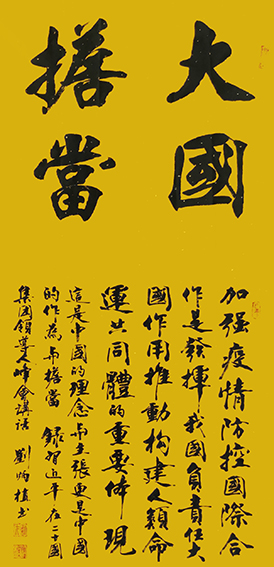 大國
擔當
加强疫情防控國際合
作是發揮我國負責任大
國作用推動構建人類命
運共同體的重要体現
這是中國的理念与主張更是中國
的作為与擔當 錄習近平在二十國
集团領导人峰会講話 劉炳植书